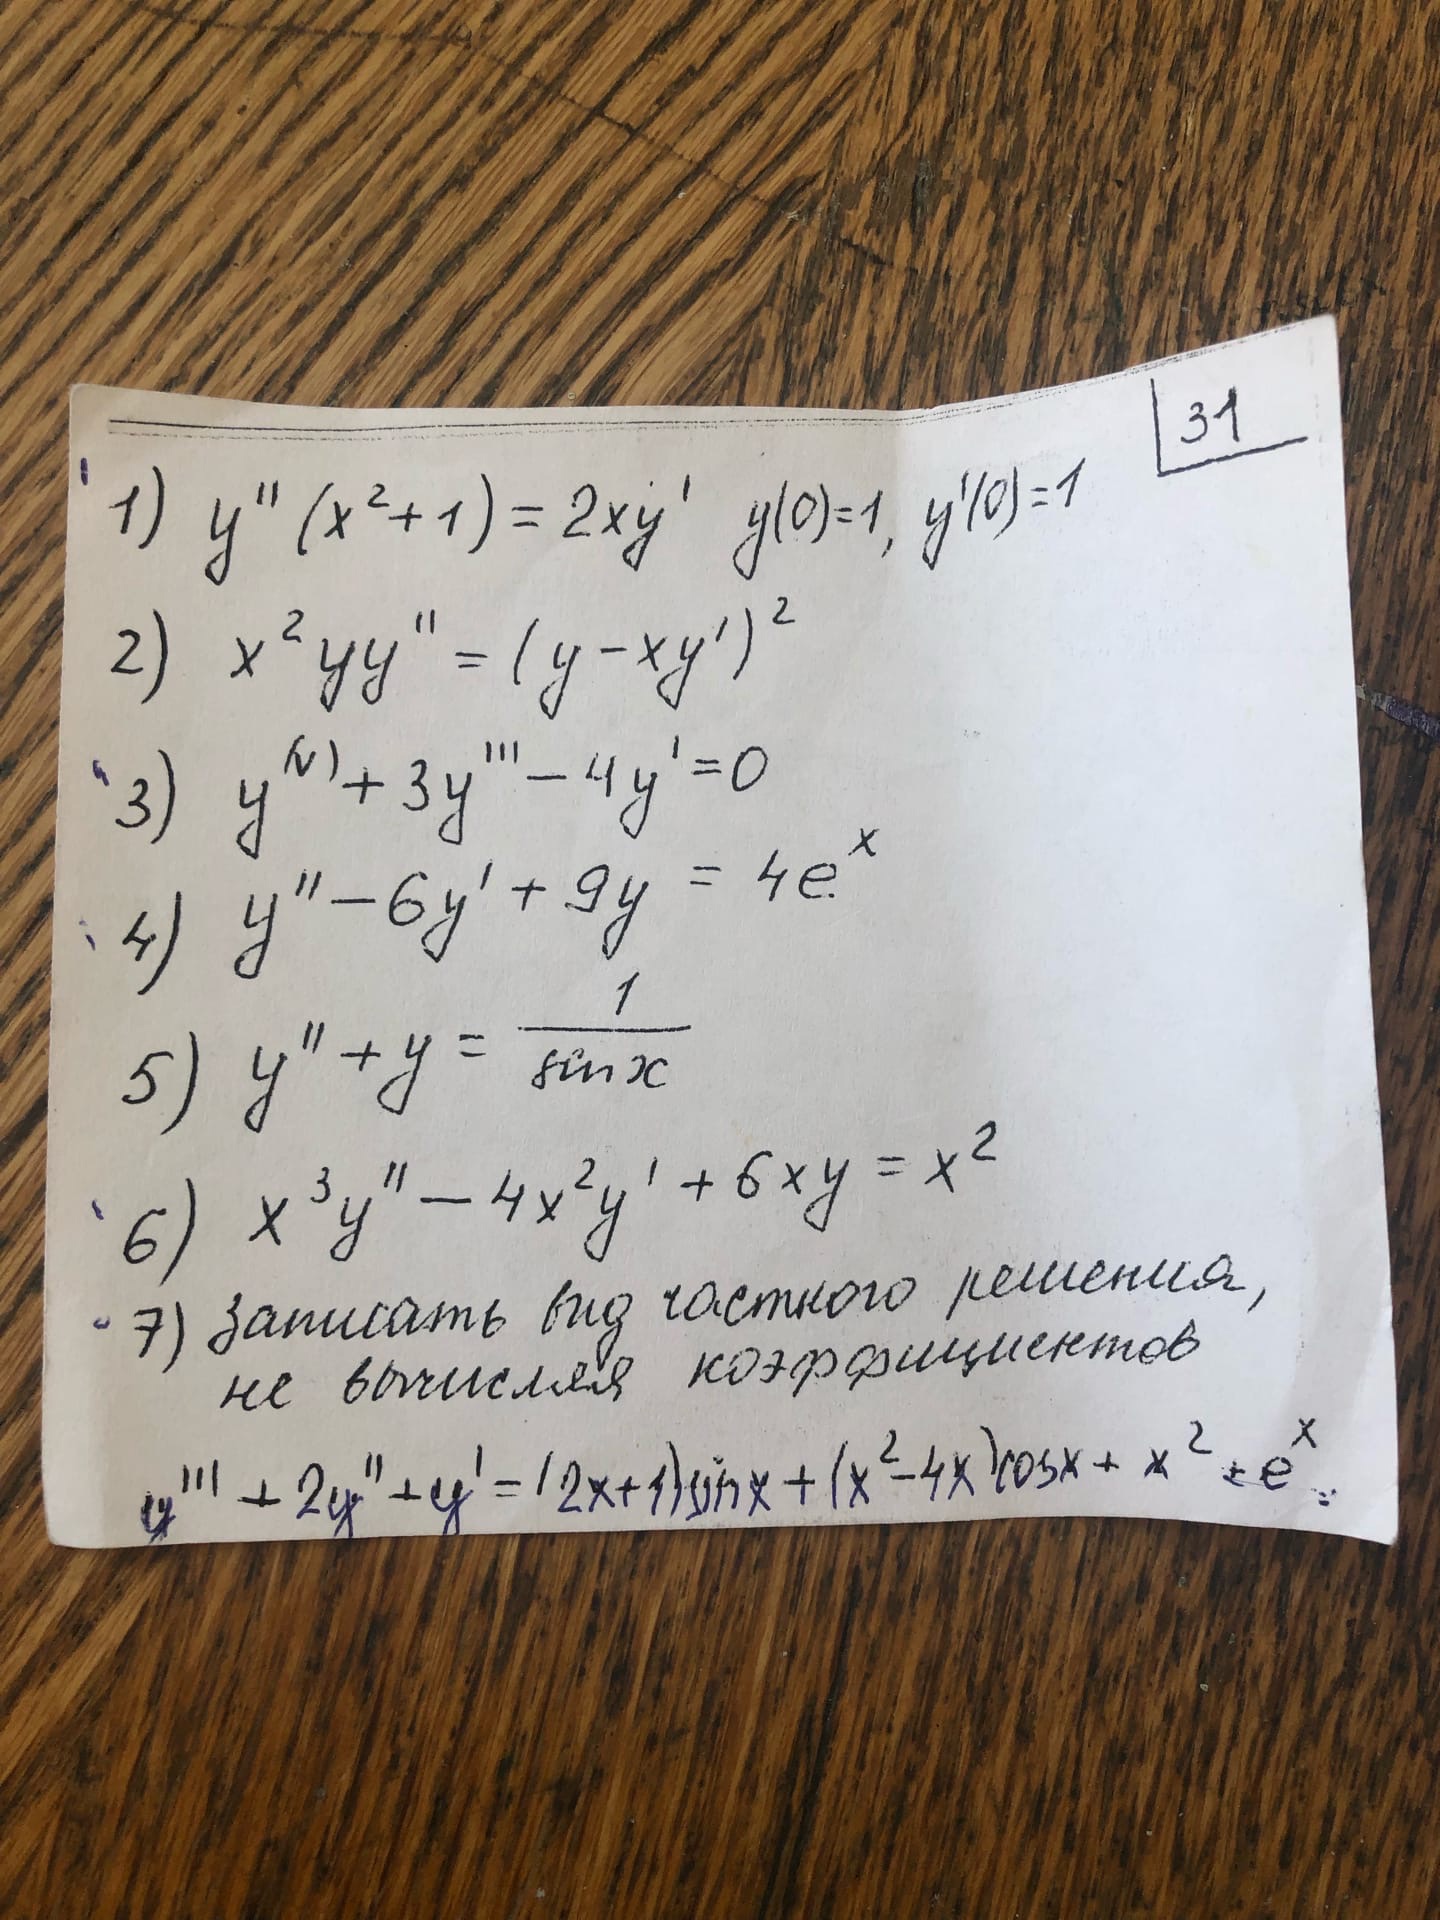 31
1) y'' (x² + 1) = 2xy' y(0)=1, y'(0)=1
2) x² yy'' = (y - xy')²
3) y⁽ⱽ⁾ + 3y''' - 4y' = 0
4) y'' - 6y' + 9y = 4eˣ
5) y'' + y = 1/sin x
6) x³y'' - 4x²y' + 6xy = x²
7) Записать вид частного решения,
не вычисляя коэффициентов
y''' + 2y'' + y' = (2x+1)sinx + (x² - 4x)cosx + x² + eˣ.